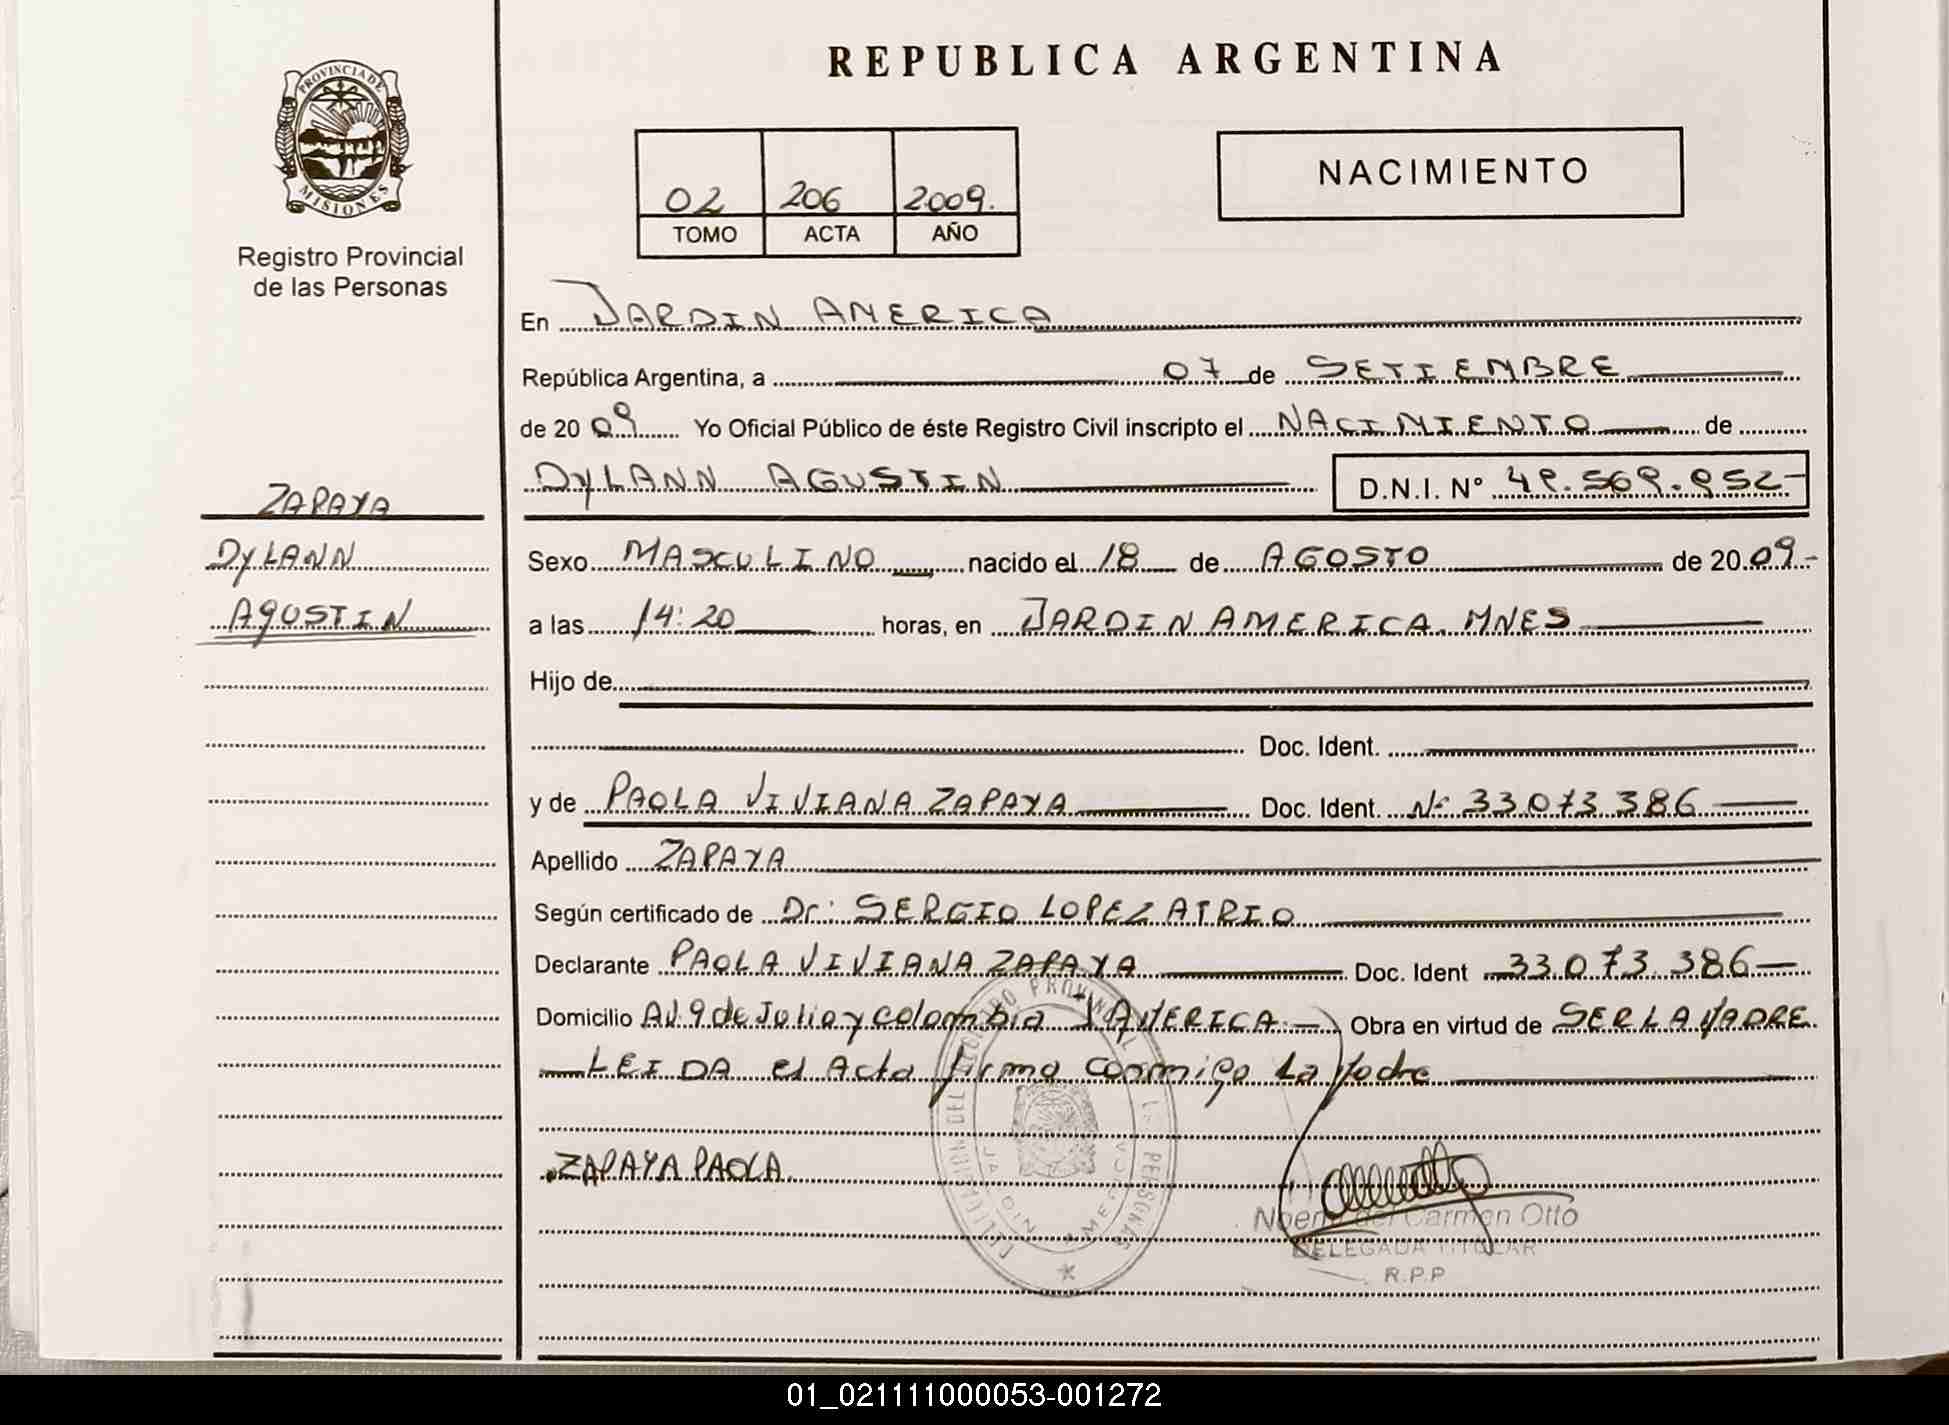 REPUBLICA ARGENTINA
PROVINCIA DE
MISIONES
Registro Provincial
de las Personas
02 206 2009.
TOMO ACTA AÑO
NACIMIENTO
ZAPAYA
DYLANN
AGOSTIN
En JARDIN AMERICA
República Argentina, a 07 de SETIEMBRE
de 20 09 Yo Oficial Público de éste Registro Civil inscripto el NACIMIENTO de
DYLANN AGUSTIN D.N.I. Nº 49.569.952-
Sexo MASCULINO nacido el 18 de AGOSTO de 20 09.-
a las 14:20 horas, en JARDIN AMERICA. MNES
Hijo de
Doc. Ident.
y de PAOLA VIVIANA ZAPAYA Doc. Ident. Nº 33.073.386
Apellido ZAPAYA
Según certificado de Dr: SERGIO LOPEZ ATRIO
Declarante PAOLA VIVIANA ZAPAYA Doc. Ident 33.073.386
Domicilio AV. 9 de Julio y colombia J. AMERICA Obra en virtud de SER LA MADRE.
LEIDA el Acta firma conmigo La Madre
ZAPAYA PAOLA.
DELEGACION DEL REGISTRO PROVINCIAL DE LAS PERSONAS
JARDIN AMERICA
del Carmen Otto
DELEGADA TITULAR
R.P.P
01_021111000053-001272